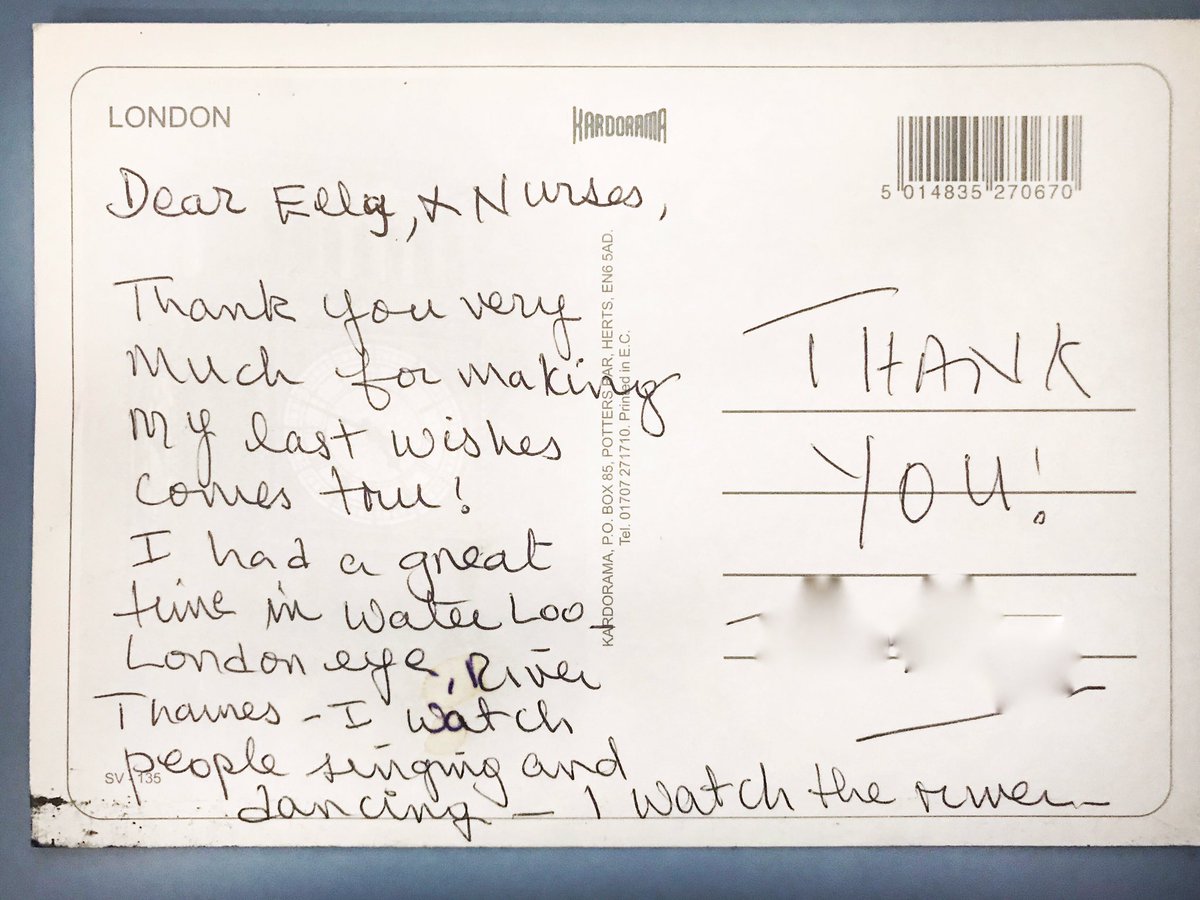 LONDON
KARDORAMA
5 014835 270670
Dear Elly, & Nurses,
Thank you very
Much for making
My last wishes
comes true!
I had a great
time in Water Loo_
London eye, River
Thames - I watch
people singing and
dancing - I watch the river_
SV - 135
KARDORAMA, P.O. BOX 85, POTTERS BAR, HERTS, EN6 5AD.
Tel. 01707 271710. Printed in E.C.
THANK
YOU!